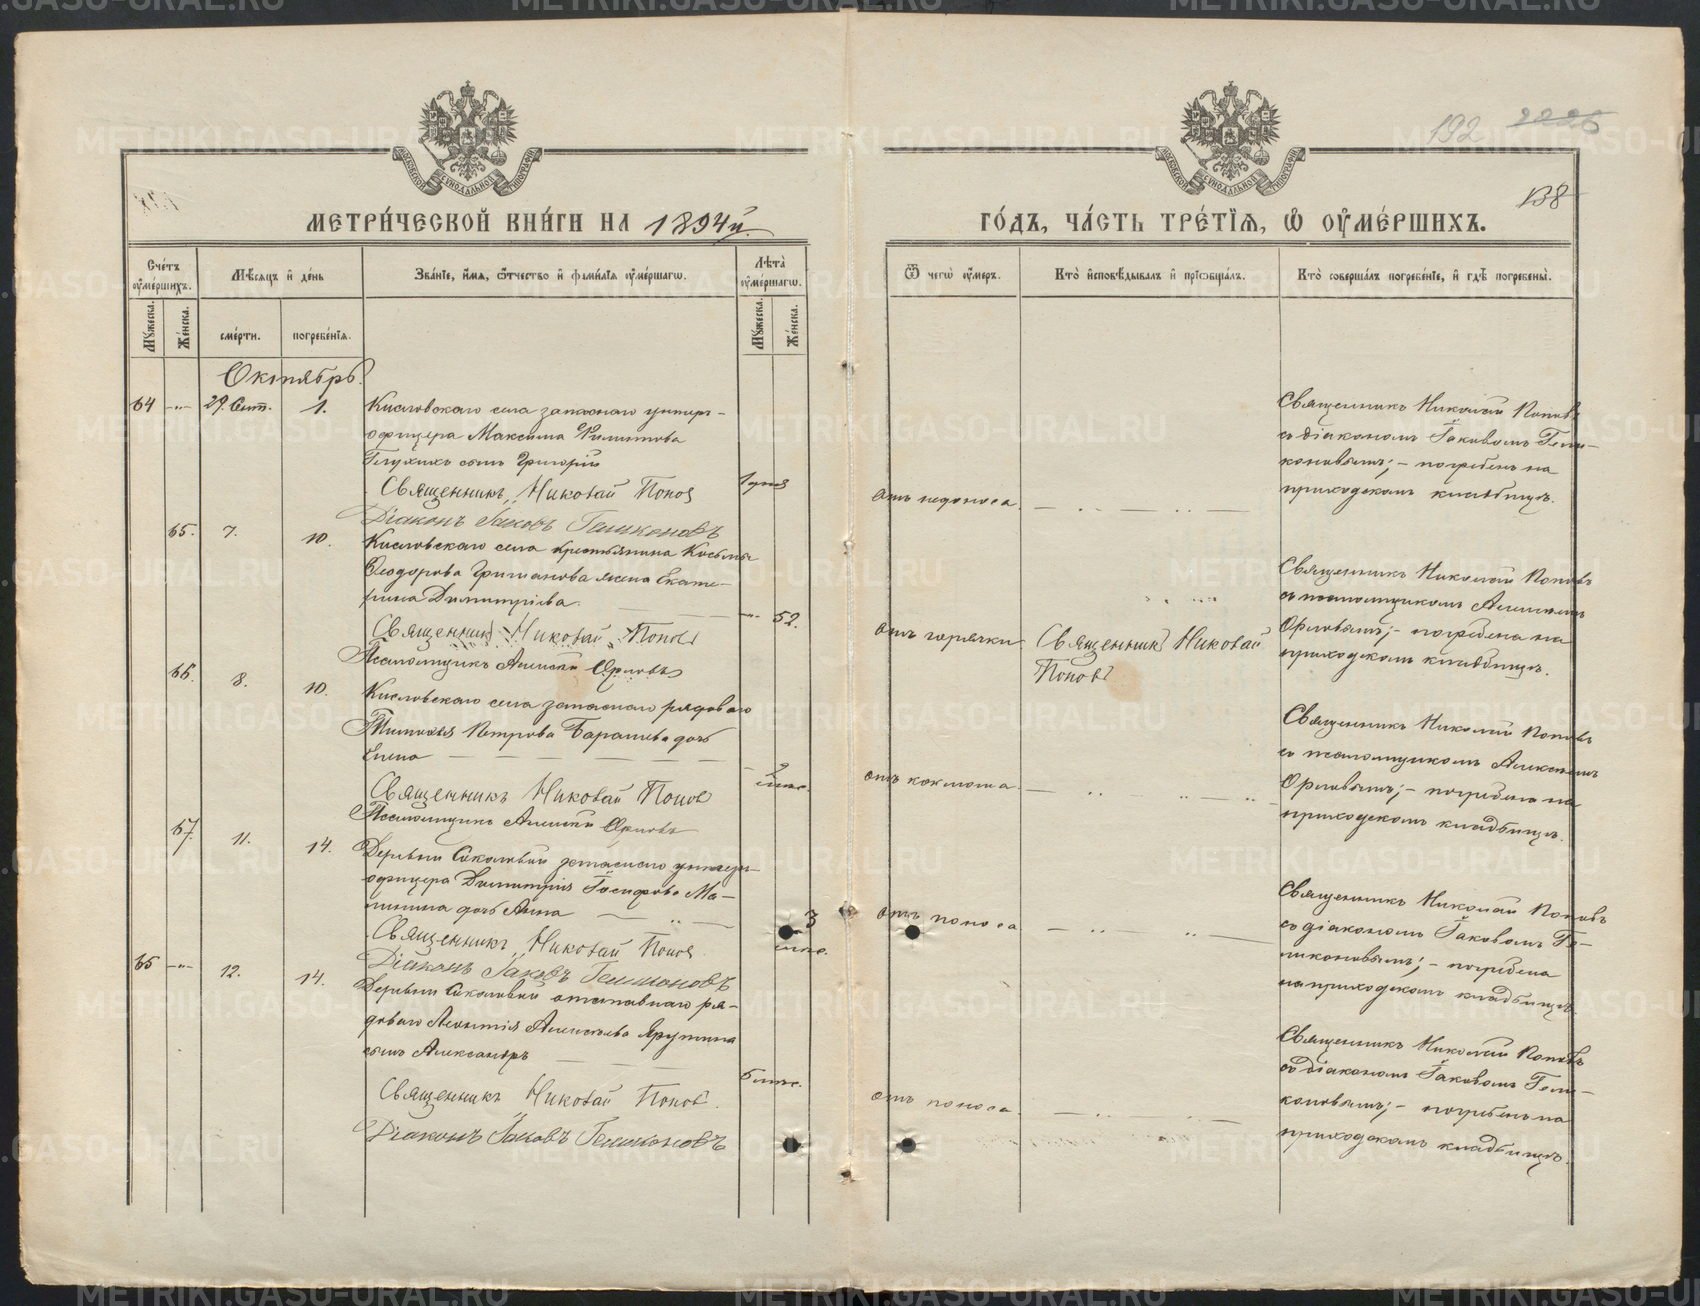 192 2226
138
МЕТРИ́ЧЕСКОЙ КНИ́ГИ НА 1894й
ГО́ДЪ, ЧА́СТЬ ТРЕ́ТІЯ, Ѡ҆ ОУ҆МЕ́РШИХЪ.
Сче́тъ оу҆ме́ршихъ.
Мѣ́сяцъ и҆ де́нь
Зва́нїе, и҆́мя, ѻ҆́тчество и҆ фами́лїя оу҆ме́ршагѡ.
Лѣта̀ оу҆ме́ршагѡ.
Ѿ чегѡ̀ оу҆́меръ.
Кто̀ и҆сповѣ́дывалъ и҆ прїѡбща́лъ.
Кто̀ соверша́лъ погребе́нїе, и҆ гдѣ̀ погребены̀.
Му́жеска.
Же́нска.
сме́рти.
погребе́нїя.
Му́жеска.
Же́нска.
Октябрь.
64 -"- 29. Сент. 1.
Кисловскаго села запаснаго унтеръ-
офицера Максима Филиппова
Глухихъ сынъ Григорій
Священникъ Николай Попов
Діаконъ Іаковъ Геликоновъ
1 дня
отъ недоноса.
Священникъ Николай Поповъ
съ діакономъ Іаковомъ Гели-
коновымъ; - погребенъ на
приходскомъ кладбищѣ.
65. 7. 10.
Кисловскаго села крестьянина Косьмы
Ѳеодорова Григианова жена Екате-
рина Димитріева.
Священникъ Николай Попов
Псаломщикъ Алексѣй Орловъ
-"- 52.
отъ горячки
Священникъ Николай
Поповъ
Священникъ Николай Поповъ
съ псаломщикомъ Алексѣемъ
Орловымъ; - погребена на
приходскомъ кладбищѣ.
66. 8. 10.
Кисловскаго села запаснаго рядоваго
Петрова Барашева дочь
Елена
Священникъ Николай Попов
Псаломщикъ Алексѣй Орловъ
2 мѣс.
отъ коклюша
Священникъ Николай Поповъ
съ псаломщикомъ Алексѣемъ
Орловымъ; - погребена на
приходскомъ кладбищѣ.
67. 11. 14.
Деревни Соколовой запаснаго унтеръ-
офицера Димитрія Іосифова Ма-
линина дочь Анна
Священникъ Николай Попов
Діаконъ Іаковъ Геликоновъ
3 мѣс.
отъ поноса
Священникъ Николай Поповъ
съ діакономъ Іаковомъ Ге-
ликоновымъ; - погребена
на приходскомъ кладбищѣ.
65 -"- 12. 14.
Деревни Соколовой отставнаго ря-
доваго Леонтія Алексѣева Ярутина
сынъ Александръ
Священникъ Николай Попов.
Діаконъ Іаковъ Геликоновъ
6 мѣс.
отъ поноса
Священникъ Николай Поповъ
съ діакономъ Іаковомъ Гели-
коновымъ; - погребенъ на
приходскомъ кладбищѣ.
METRIKI.GASO-URAL.RU